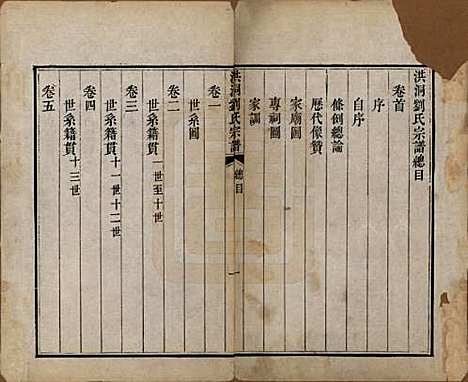 洪洞劉氏宗譜總目
卷首
序
自序
條例總論
歷代像贊
家廟圖
專祠圖
家訓
洪洞劉氏宗譜 總目 一
卷一
世系圖
卷二
世系籍貫一世至十世
卷三
世系籍貫十一世十二世
卷四
世系籍貫十三世
卷五